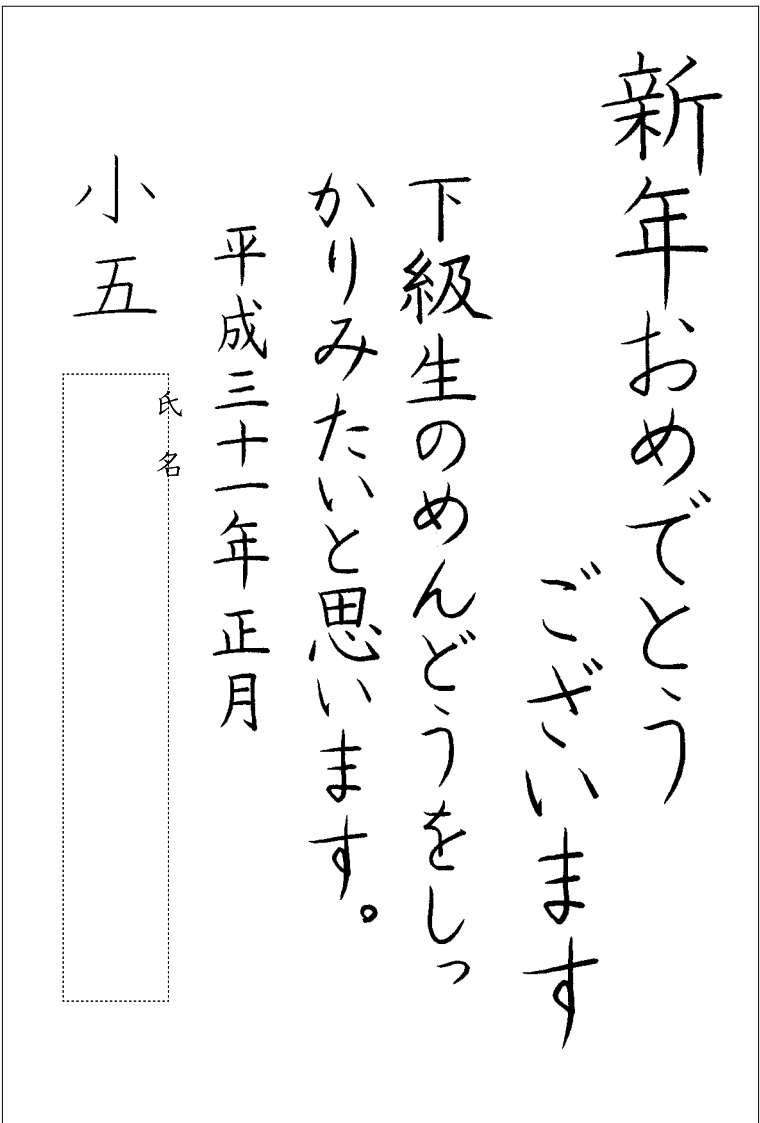 新年おめでとう
ございます
下級生のめんどうをしっ
かりみたいと思います。
平成三十一年正月
小五
氏名